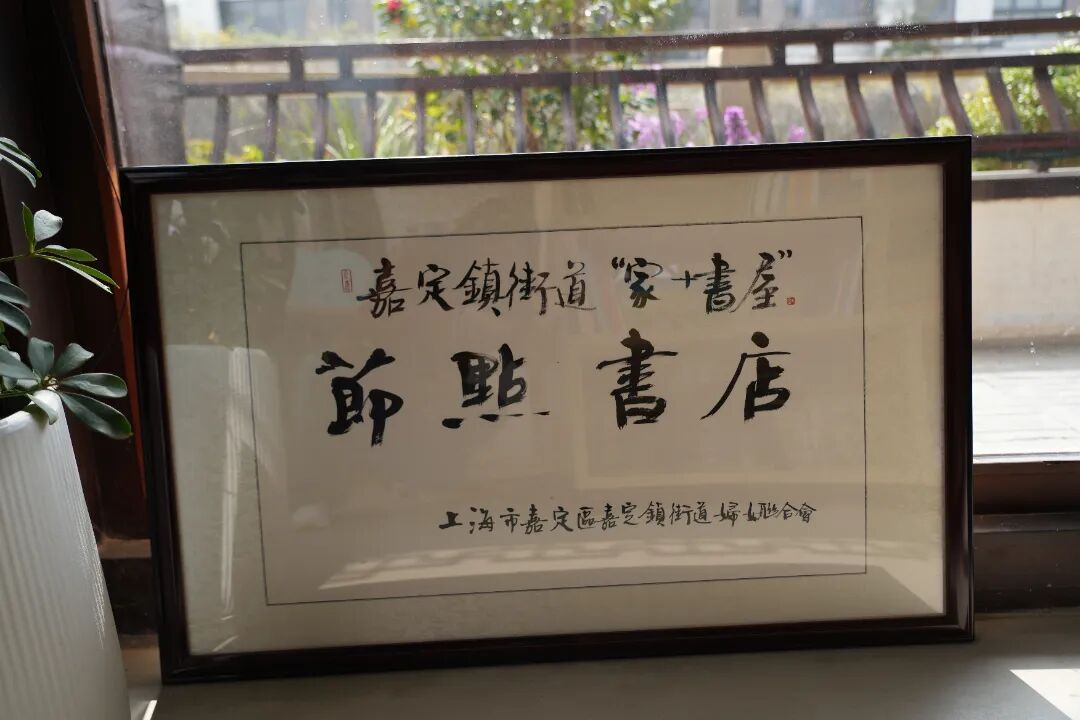 嘉定鎮街道“家+書屋”
節點書店
上海市嘉定區嘉定鎮街道婦女聯合會